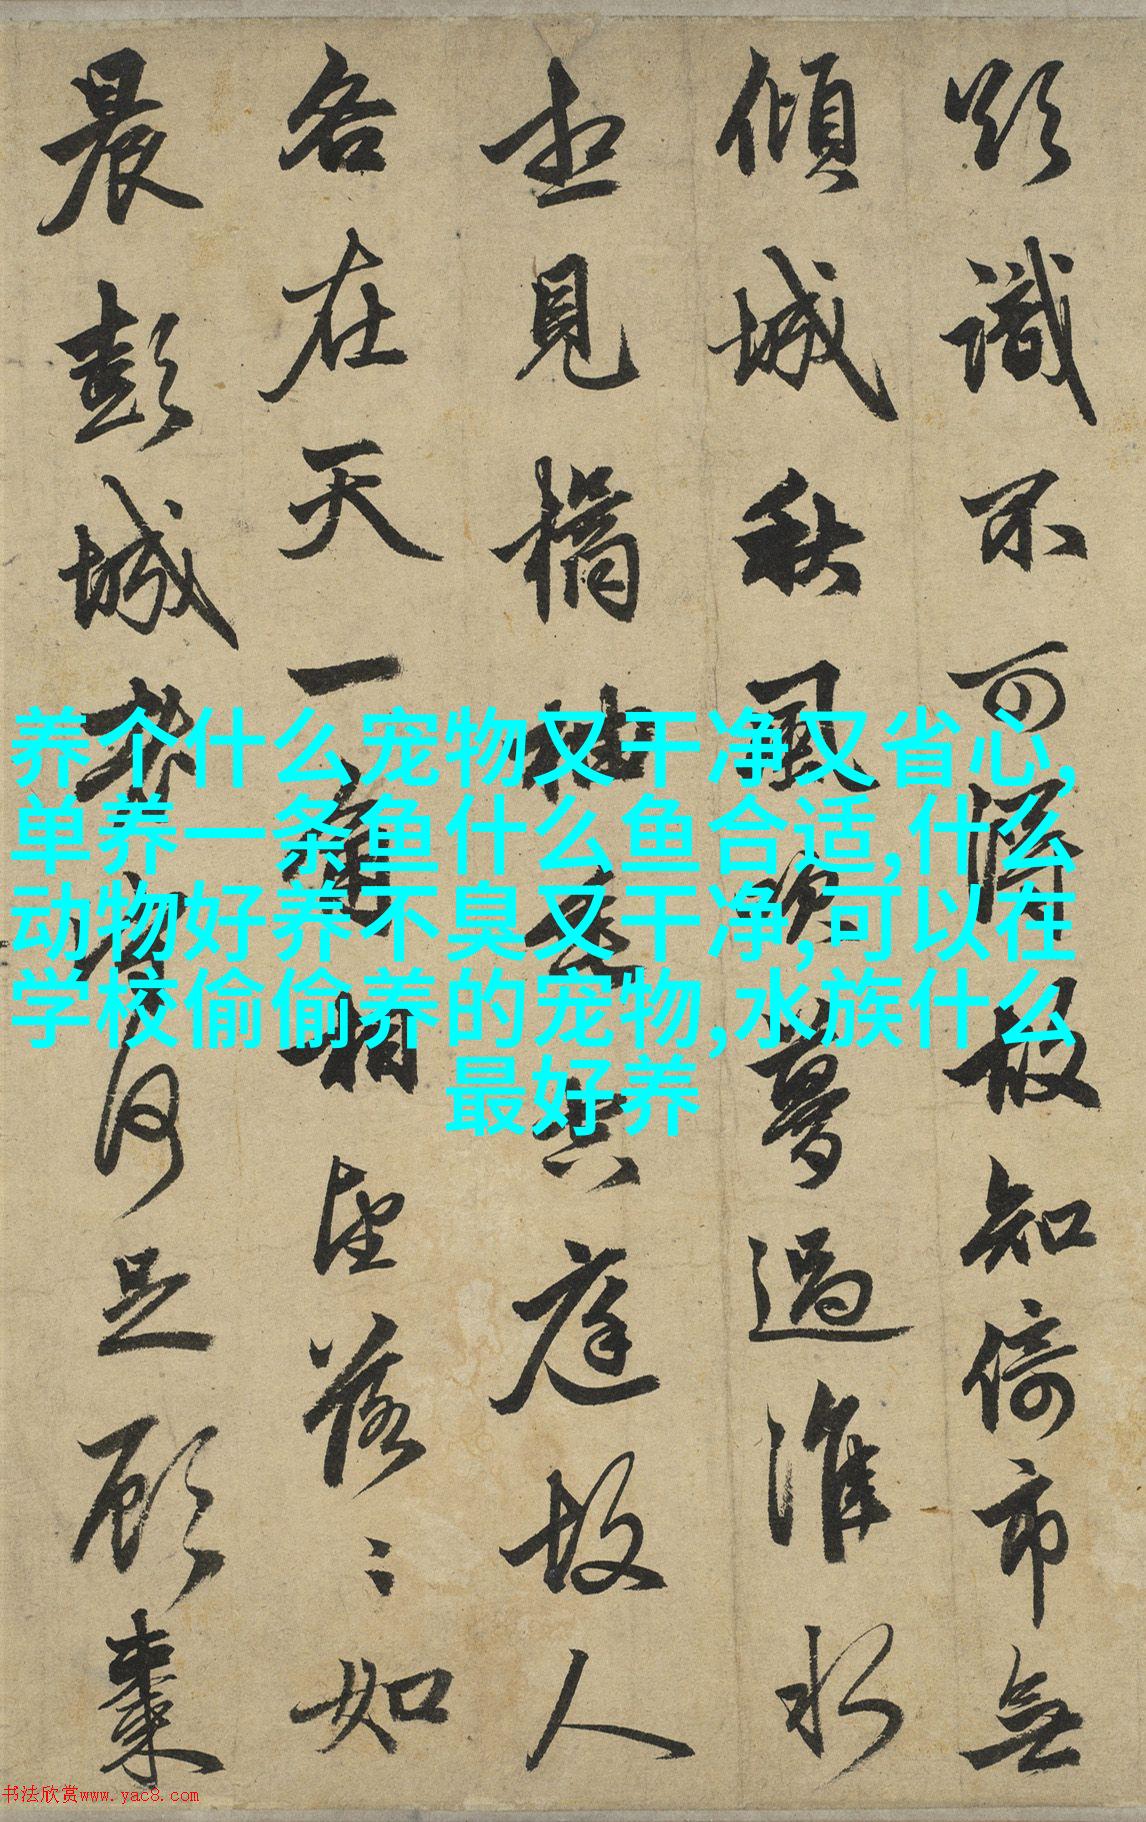 識不可故知倚市無
傾城秋風吹夢過淮水
想見橘柚垂空庭故人
各在天一角相望落〻如
晨彭城老守何足顧棗
养个什么宠物又干净又省心,
单养一条鱼什么鱼合适,什么
动物好养不臭又干净,可以在
学校偷偷养的宠物,水族什么
最好养
书法欣赏www.yac8.com